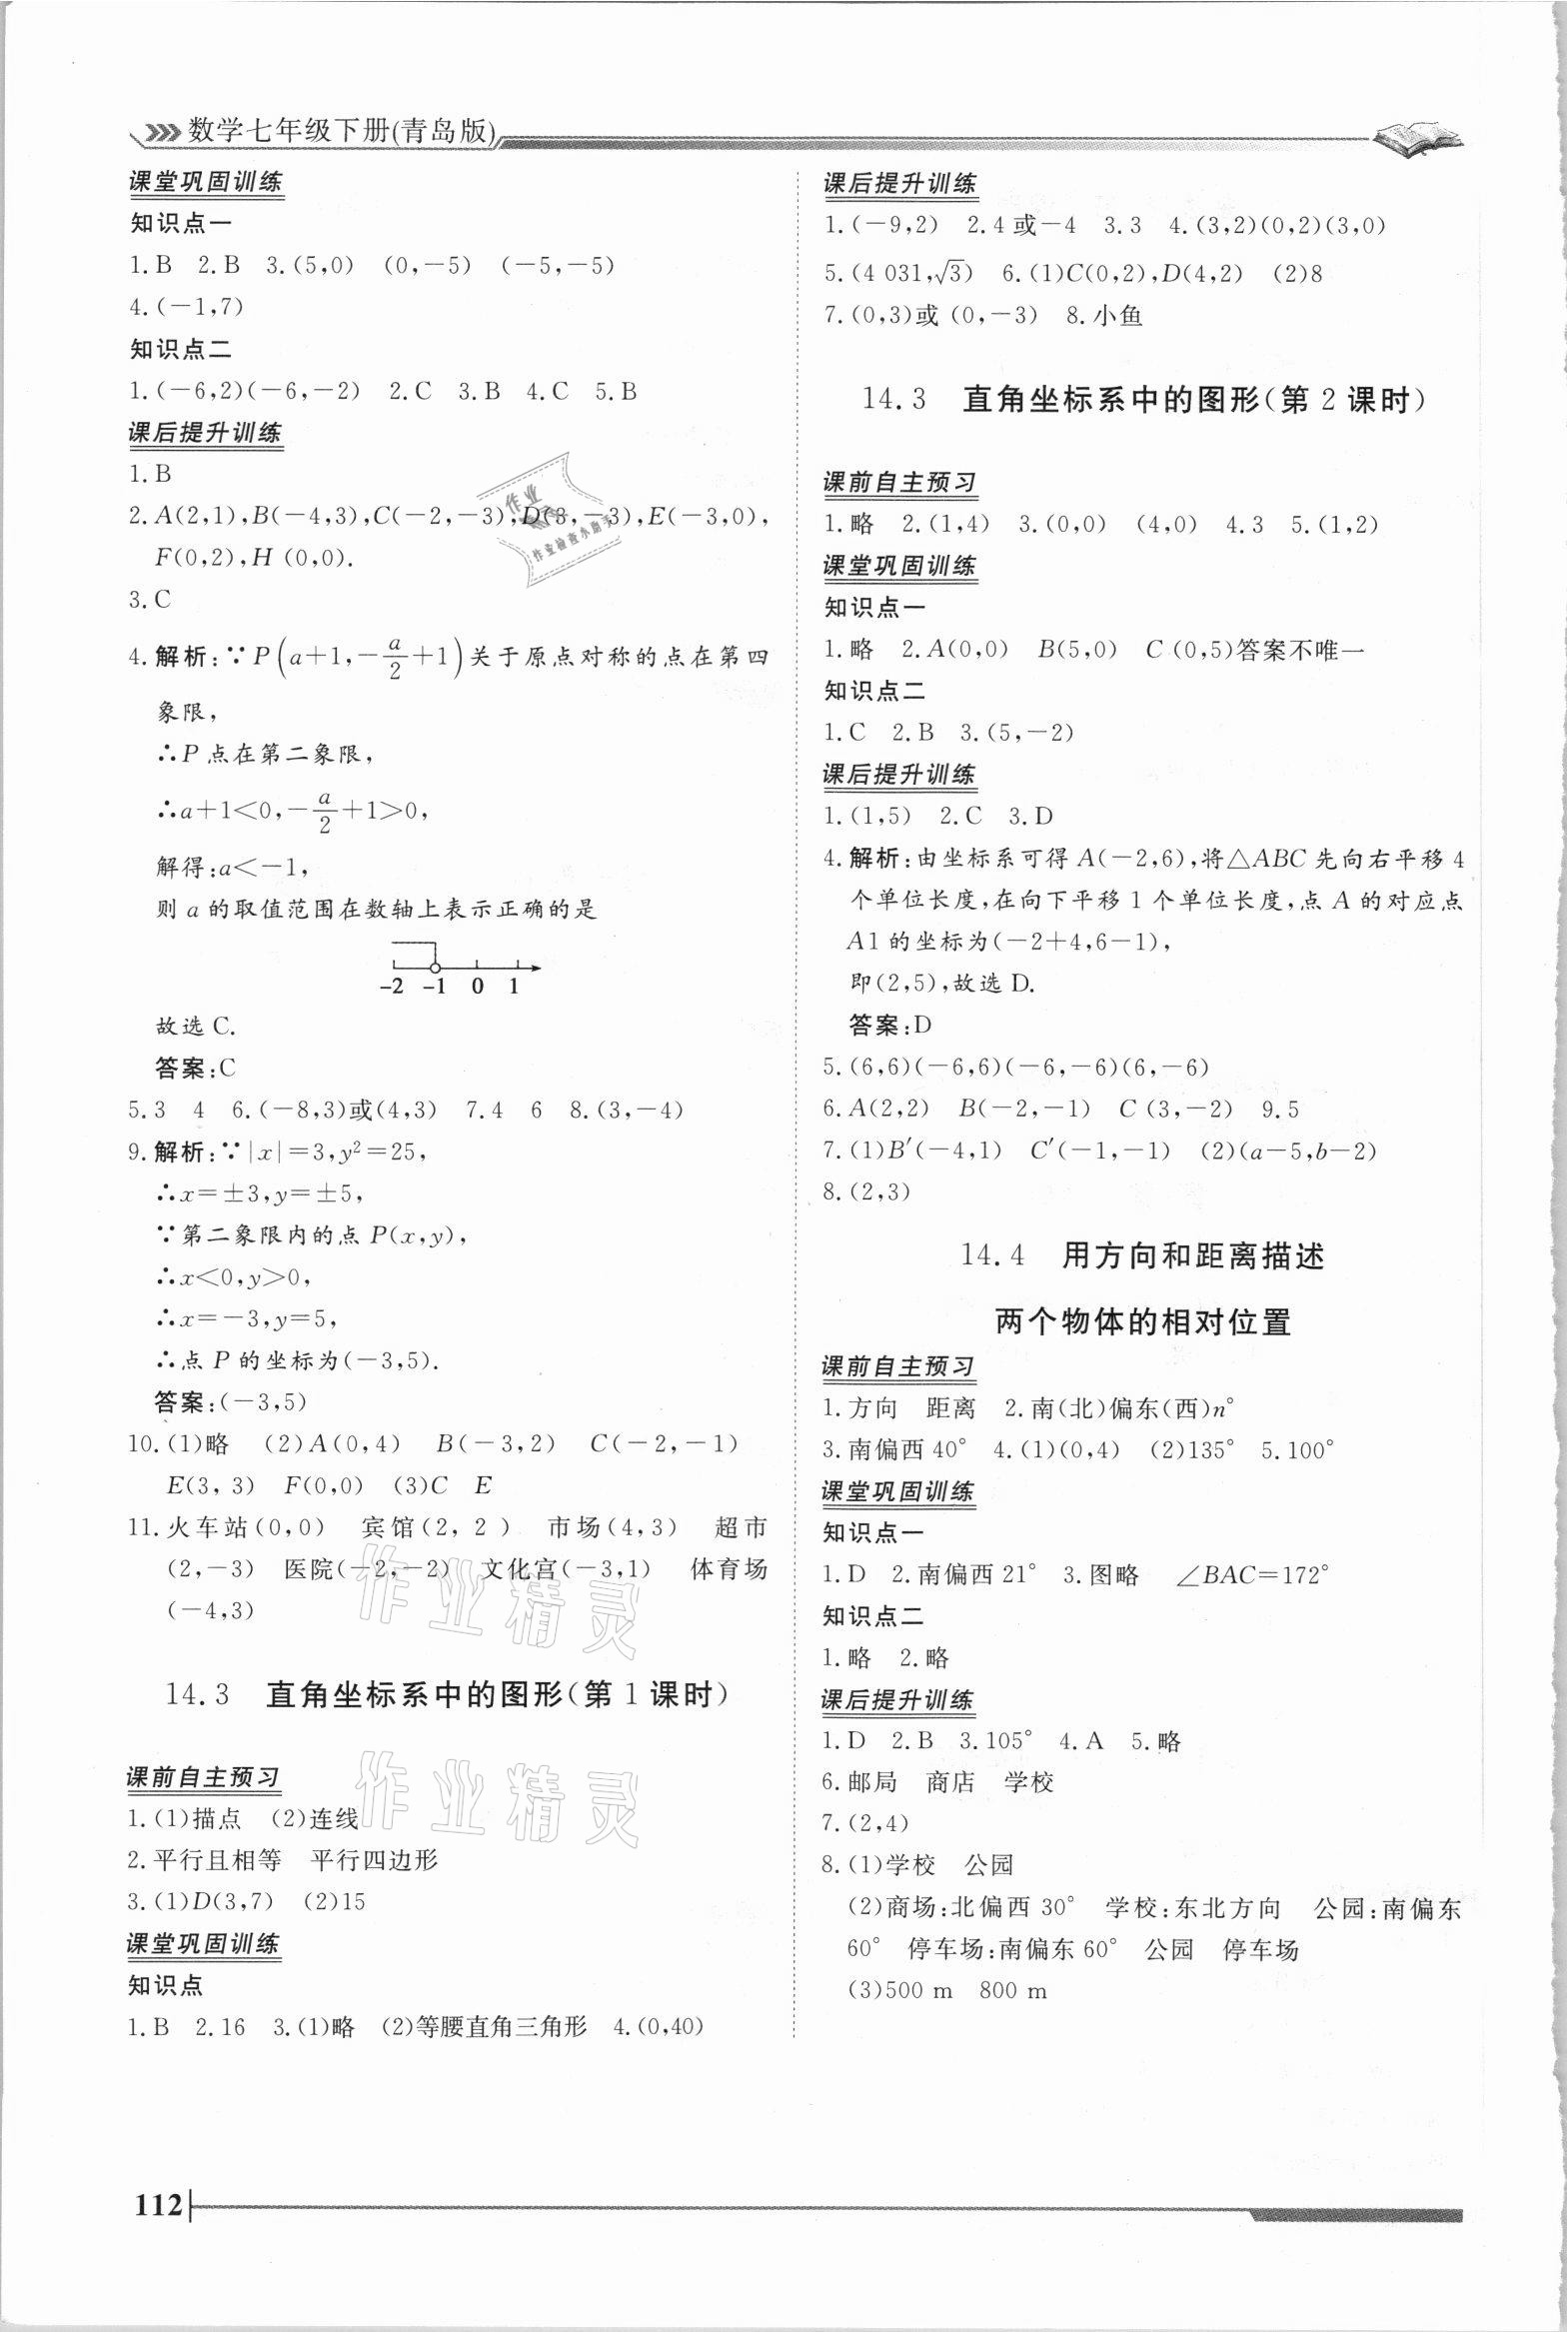 数学七年级下册(青岛版)
课堂巩固训练
知识点一
1.B 2.B 3.(5,0) (0,-5) (-5,-5)
4.(-1,7)
知识点二
1.(-6,2)(-6,-2) 2.C 3.B 4.C 5.B
课后提升训练
1.B
2.A(2,1),B(-4,3),C(-2,-3),D(3,-3),E(-3,0),
F(0,2),H (0,0).
3.C
4.解析:∵P(a+1,-a/2+1)关于原点对称的点在第四
象限,
∴P点在第二象限,
∴a+1<0,-a/2+1>0,
解得:a<-1,
则a的取值范围在数轴上表示正确的是
-2 -1 0 1
故选C.
答案:C
5.3 4 6.(-8,3)或(4,3) 7.4 6 8.(3,-4)
9.解析:∵|x|=3,y²=25,
∴x=±3,y=±5,
∵第二象限内的点P(x,y),
∴x<0,y>0,
∴x=-3,y=5,
∴点P的坐标为(-3,5).
答案:(-3,5)
10.(1)略 (2)A(0,4) B(-3,2) C(-2,-1)
E(3,3) F(0,0) (3)C E
11.火车站(0,0) 宾馆(2,2) 市场(4,3) 超市
(2,-3) 医院(-2,-2) 文化宫(-3,1) 体育场
(-4,3)
14.3 直角坐标系中的图形(第1课时)
课前自主预习
1.(1)描点 (2)连线
2.平行且相等 平行四边形
3.(1)D(3,7) (2)15
课堂巩固训练
知识点
1.B 2.16 3.(1)略 (2)等腰直角三角形 4.(0,40)
课后提升训练
1.(-9,2) 2.4或-4 3.3 4.(3,2)(0,2)(3,0)
5.(4 031,√3) 6.(1)C(0,2),D(4,2) (2)8
7.(0,3)或(0,-3) 8.小鱼
14.3 直角坐标系中的图形(第2课时)
课前自主预习
1.略 2.(1,4) 3.(0,0) (4,0) 4.3 5.(1,2)
课堂巩固训练
知识点一
1.略 2.A(0,0) B(5,0) C(0,5)答案不唯一
知识点二
1.C 2.B 3.(5,-2)
课后提升训练
1.(1,5) 2.C 3.D
4.解析:由坐标系可得A(-2,6),将△ABC先向右平移4
个单位长度,在向下平移1个单位长度,点A的对应点
A1的坐标为(-2+4,6-1),
即(2,5),故选D.
答案:D
5.(6,6)(-6,6)(-6,-6)(6,-6)
6.A(2,2) B(-2,-1) C(3,-2) 9.5
7.(1)B′(-4,1) C′(-1,-1) (2)(a-5,b-2)
8.(2,3)
14.4 用方向和距离描述
两个物体的相对位置
课前自主预习
1.方向 距离 2.南(北)偏东(西)n°
3.南偏西40° 4.(1)(0,4) (2)135° 5.100°
课堂巩固训练
知识点一
1.D 2.南偏西21° 3.图略 ∠BAC=172°
知识点二
1.略 2.略
课后提升训练
1.D 2.B 3.105° 4.A 5.略
6.邮局 商店 学校
7.(2,4)
8.(1)学校 公园
(2)商场:北偏西30° 学校:东北方向 公园:南偏东
60° 停车场:南偏东60° 公园 停车场
(3)500 m 800 m
作业
作业检查小助手
作业精灵
作业精灵
112